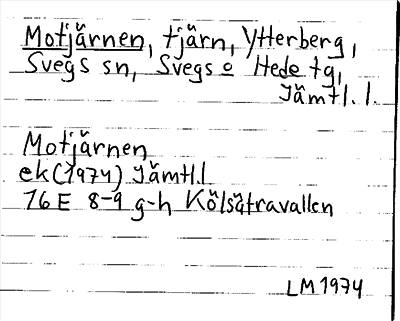 Motjärnen, tjärn, Ytterberg,
Svegs sn, Svegs o Hede tg,
Jämtl. l.
Motjärnen
ek (1974) Jämtl. l
16 E 8-9 g-h Kölsätravallen
LM 1974